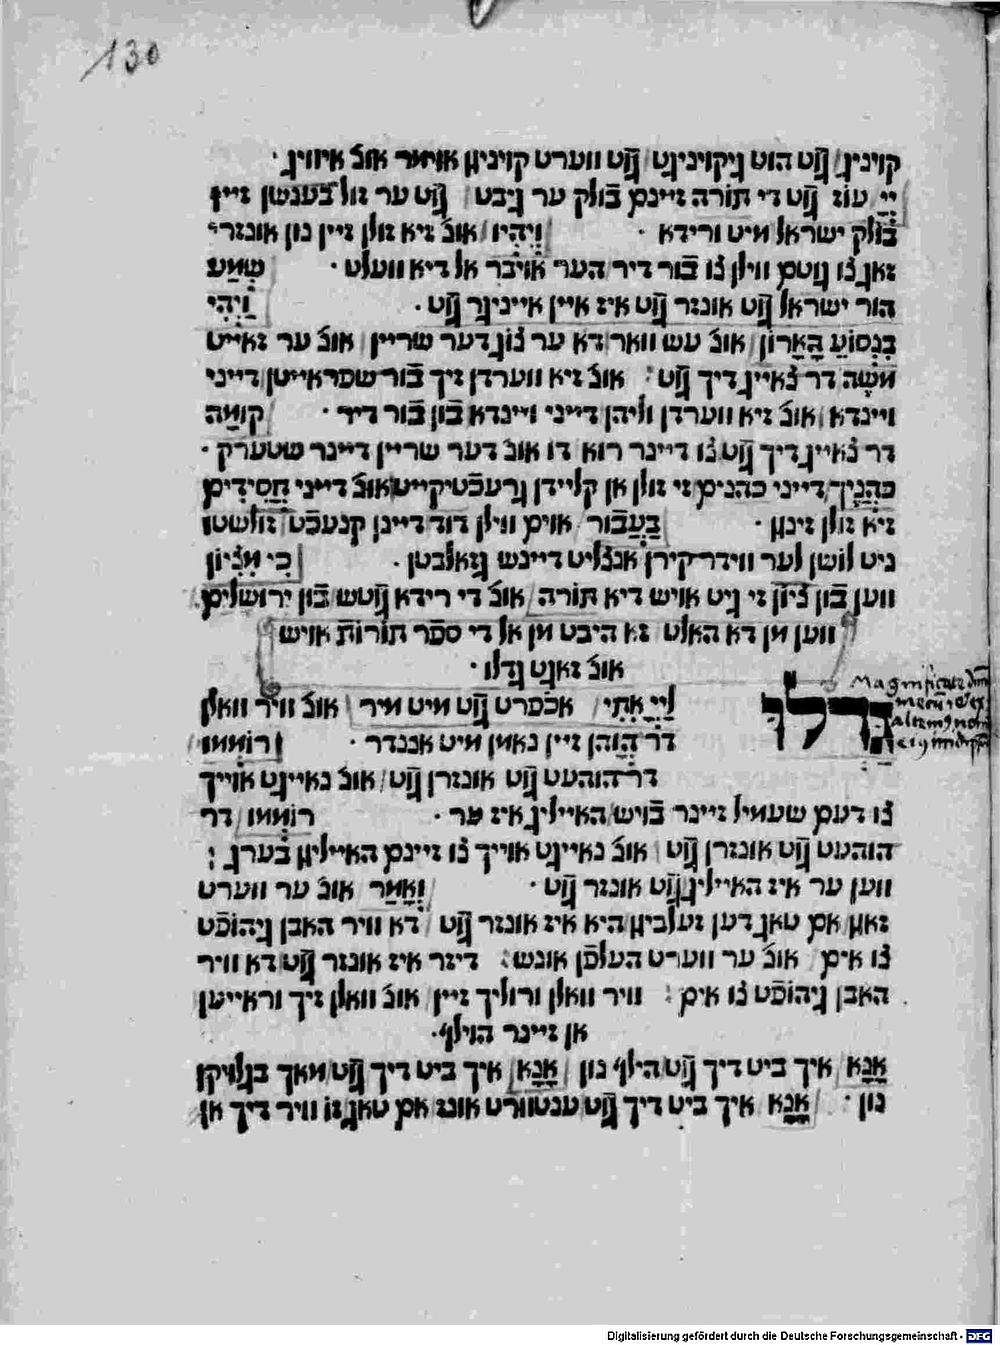 130
קוינינ׳ גֿוֹט הוט גיקוינינט גֿוֹט ווערט קוינינן אוימר אוב׳ איוויג ·
יְיָ עוֹז גֿוֹט די תורה זיינם בֿולק ער גיבט גֿוֹט ער זול בענשן זיין
בֿולק ישראל מיט ורידא · וְיִהְיוּ אוב׳ זיא זולן זיין נון אונזרי
זאג צו גוטם ווילן צו בֿור דיר הער אויבר אל דיא וועלט · שְׁמַע
הור ישראל גֿוֹט אונזר גֿוֹט איז איין אייניגר גֿוֹט · וַיְהִי
בִּנְסוֹעַ הָאָרוֹן אוב׳ עש וואר דא ער צוג דער שריין אוב׳ ער זאייט
משֶׁה דר צאייג דיך גֿוֹט : אוב׳ זיא ווערדן זיך בֿור שפראייטן דייני
ויינדא אוב׳ זיא ווערדן וליהן דייני ויינדא בֿון בֿור דיר · קוּמָה
דר צאייג דיך גֿוֹט צו דיינר רוא דו אוב׳ דער שריין דיינר שטערק ·
כֹּהֲנֶיךָ דייני כהנים זי זולן אן קליידן גרעכֿטיקייט אוב׳ דייני חֲסִידִים
זיא זולן זינגן · בַּעֲבוּר אוים ווילן דוד דיינן קנעכֿט זולשטו
ניט לושן לער ווידר קירן אנצליט דיינש גזאלבטן · כִּי מִצִּיּוֹן
ווען בֿון ציון זי גיט אויש דיא תורה אוב׳ די רידא גֿוֹטש בֿון ירושלים
ווען מן דא האלט זא היבט מן אל די ספר תורות אויש
אוב׳ זאגט גדלו ·
גַּדְּלוּ לַיְיָ אִתִּי אכפרט גֿוֹט מיט מיר אוב׳ וויר וואלן
Magnificate dnm
mecu
דר הוהן זיין נאמן מיט אננדר · רוֹמְמוּ
דר הוהעט גֿוֹט אונזרן גֿוֹט אוב׳ נאייגט אוייך
צו דעם שעמיל זיינר בֿויש האייליג איז ער · רוֹמְמוּ דר
הוהעט גֿוֹט אונזרן גֿוֹט אוב׳ נאייגט אוייך צו זיינם האיילינן בערג :
ווען ער איז האייליג גֿוֹט אונזר גֿוֹט · וְאָמַר אוב׳ ער ווערט
זאגן אם טאג דען זעלביגן היא איז אונזר גֿוֹט דא וויר האבן גיהופֿט
צו אים אוב׳ ער ווערט העלפֿן אונש : דיזר איז אונזר גֿוֹט דא וויר
האבן גיהופֿט צו אים : וויר וואלן ורוליך זיין אוב׳ וואלן זיך וראייען
אן זיינר הוילף ·
אָנָּא איך ביט דיך גֿוֹט הילף נון אָנָּא איך ביט דיך גֿוֹט מאך בגלויקן
נון · אָנָּא איך ביט דיך גֿוֹט ענטוורט אונז אם טאג זו וויר דיך אן
Digitalisierung gefördert durch die Deutsche Forschungsgemeinschaft - DFG